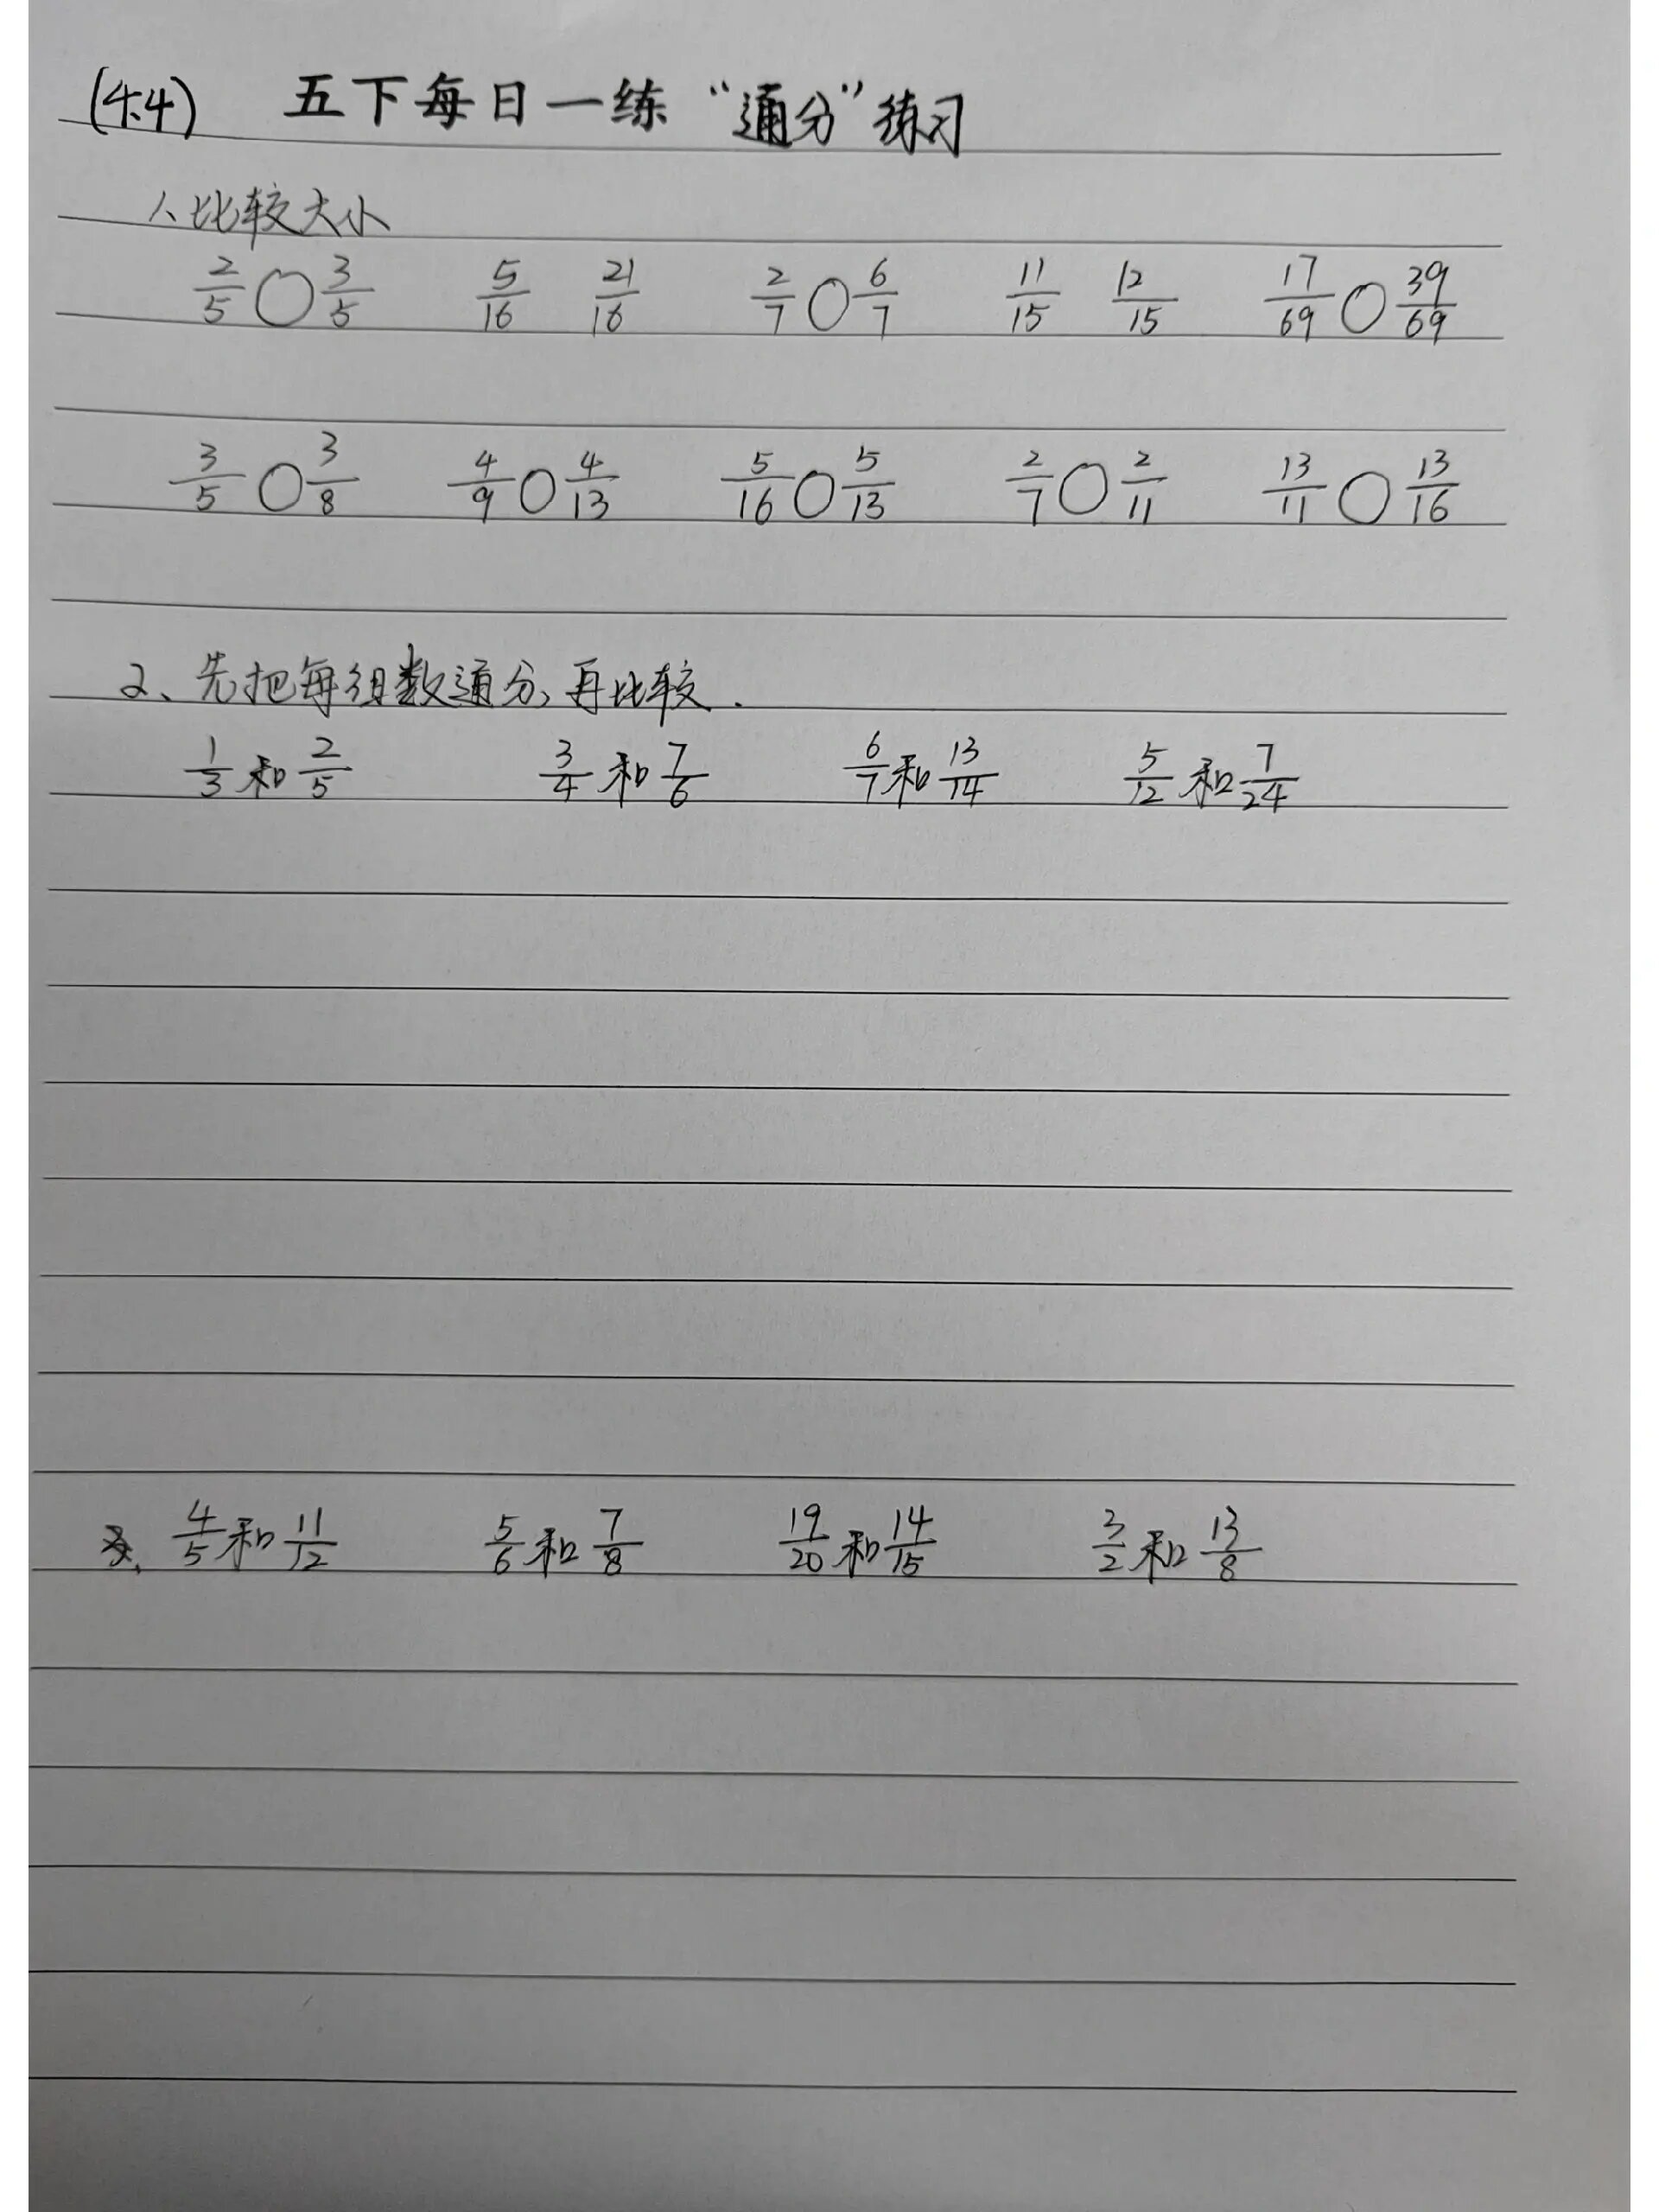 (4.4) 五下每日一练 “通分”练习
1、比较大小
2/5 ○ 3/5 5/16 21/16 2/7 ○ 6/7 11/15 12/15 17/69 ○ 39/69
3/5 ○ 3/8 4/9 ○ 4/13 5/16 ○ 5/13 2/7 ○ 2/11 13/11 ○ 13/16
2、先把每组数通分，再比较.
1/3 和 2/5 3/4 和 7/6 6/7 和 13/14 5/12 和 7/24
4/5 和 11/12 5/6 和 7/8 19/20 和 14/15 3/2 和 13/8